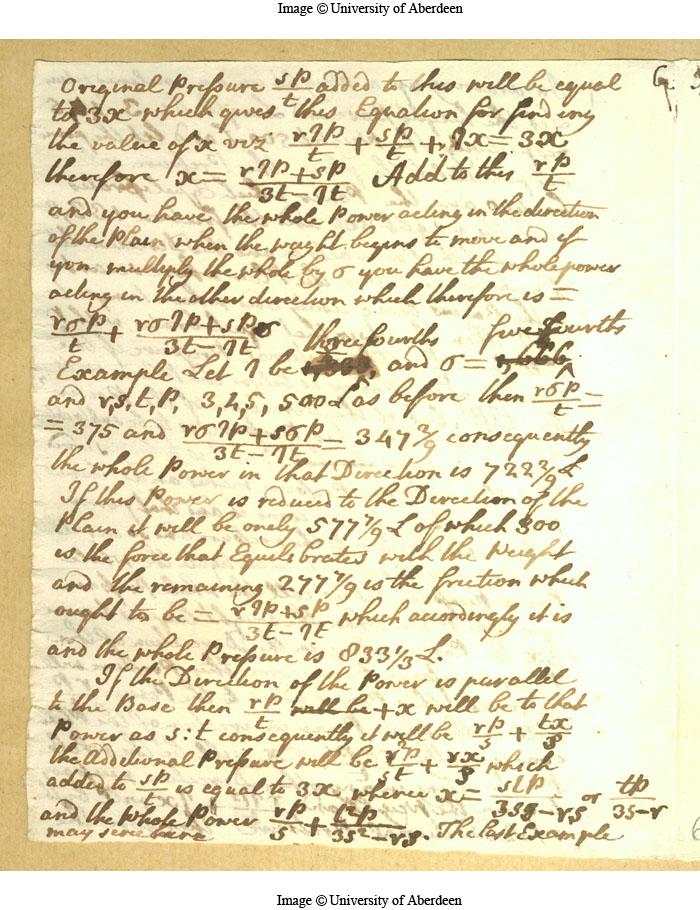 Image © University of Aberdeen
Original Pressure sp/t added to this will be equal
to 3x which gives this Equation for finding
the value of x viz rηp/t + sp/t + ηx = 3x
therefore x = rηp+sp/3t-ηt Add to this rp/t
and you have the whole Power acting in the direction
of the Plain when the weight begins to move and if
you multiply the whole by σ you have the whole power
acting in the other direction which therefore is =
rσp/t + rσηp+spσ/3t-ηt
three fourths five fourths
Example Let η be and σ =
and r,s,t,p, 3,4,5, 500 L as before then rσp/t =
= 375 and rσηp+sσp/3t-ηt = 347 2/9 consequently
the whole Power in that Direction is 722 2/9 L
If this Power is reduced to the Direction of the
Plain it will be onely 577 7/9 L of which 300
is the force that Equilibrates with the Weight
and the remaining 277 7/9 is the friction which
ought to be = rηp+sp/3t-ηt which accordingly it is
and the whole Pressure is 833 1/3 L.
If the Direction of the Power is parallel
to the Base then rp/t will be + x will be to that
Power as s:t consequently it will be rp/s + tx/s
the Additional Pressure will be r²p/st + rx/s which
added to sp/t is equal to 3x whence x = stp/3ss-rs or tp/3s-r
and the whole Power rp/s + t²p/3s²-rs. The last Example
may serve here
G
Image © University of Aberdeen